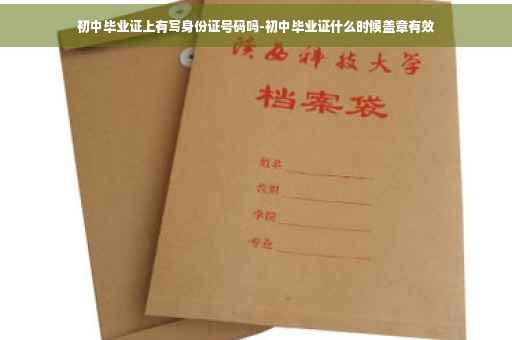 初中毕业证上有写身份证号码吗-初中毕业证什么时候盖章有效
陕西科技大学
档案袋
姓名
学院
专业